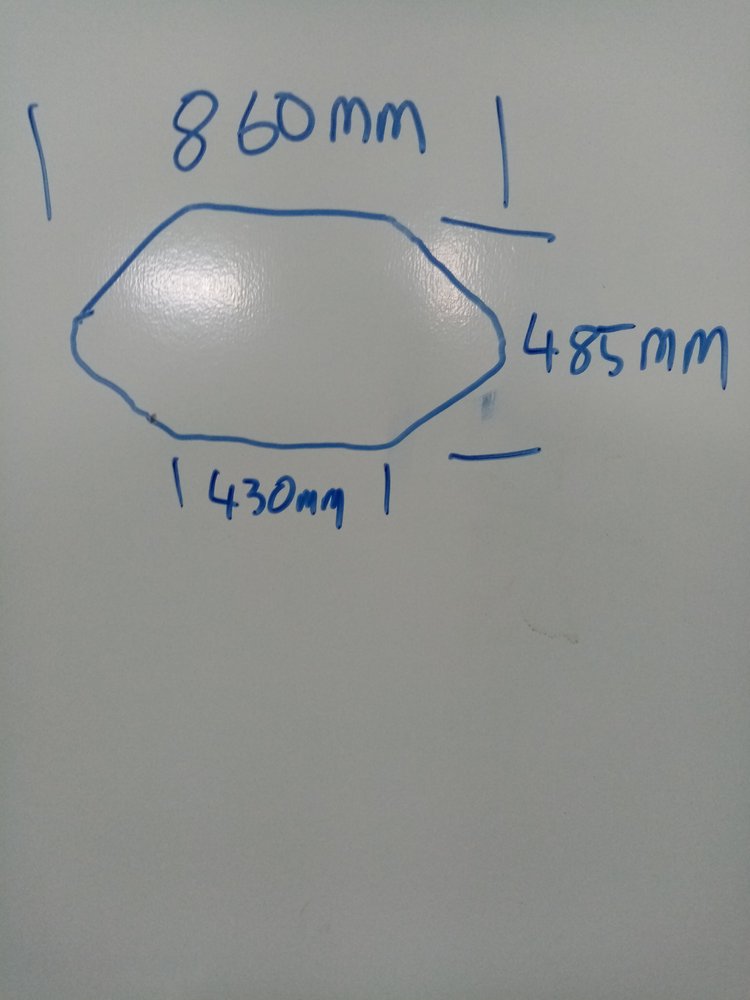 860mm
485mm
430mm